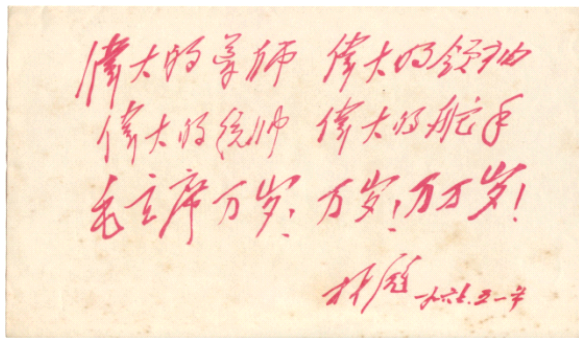 偉大的导师 偉大的领袖
偉大的统帅 偉大的舵手
毛主席万岁!万岁!万万岁!
林彪 一九六七.五一节